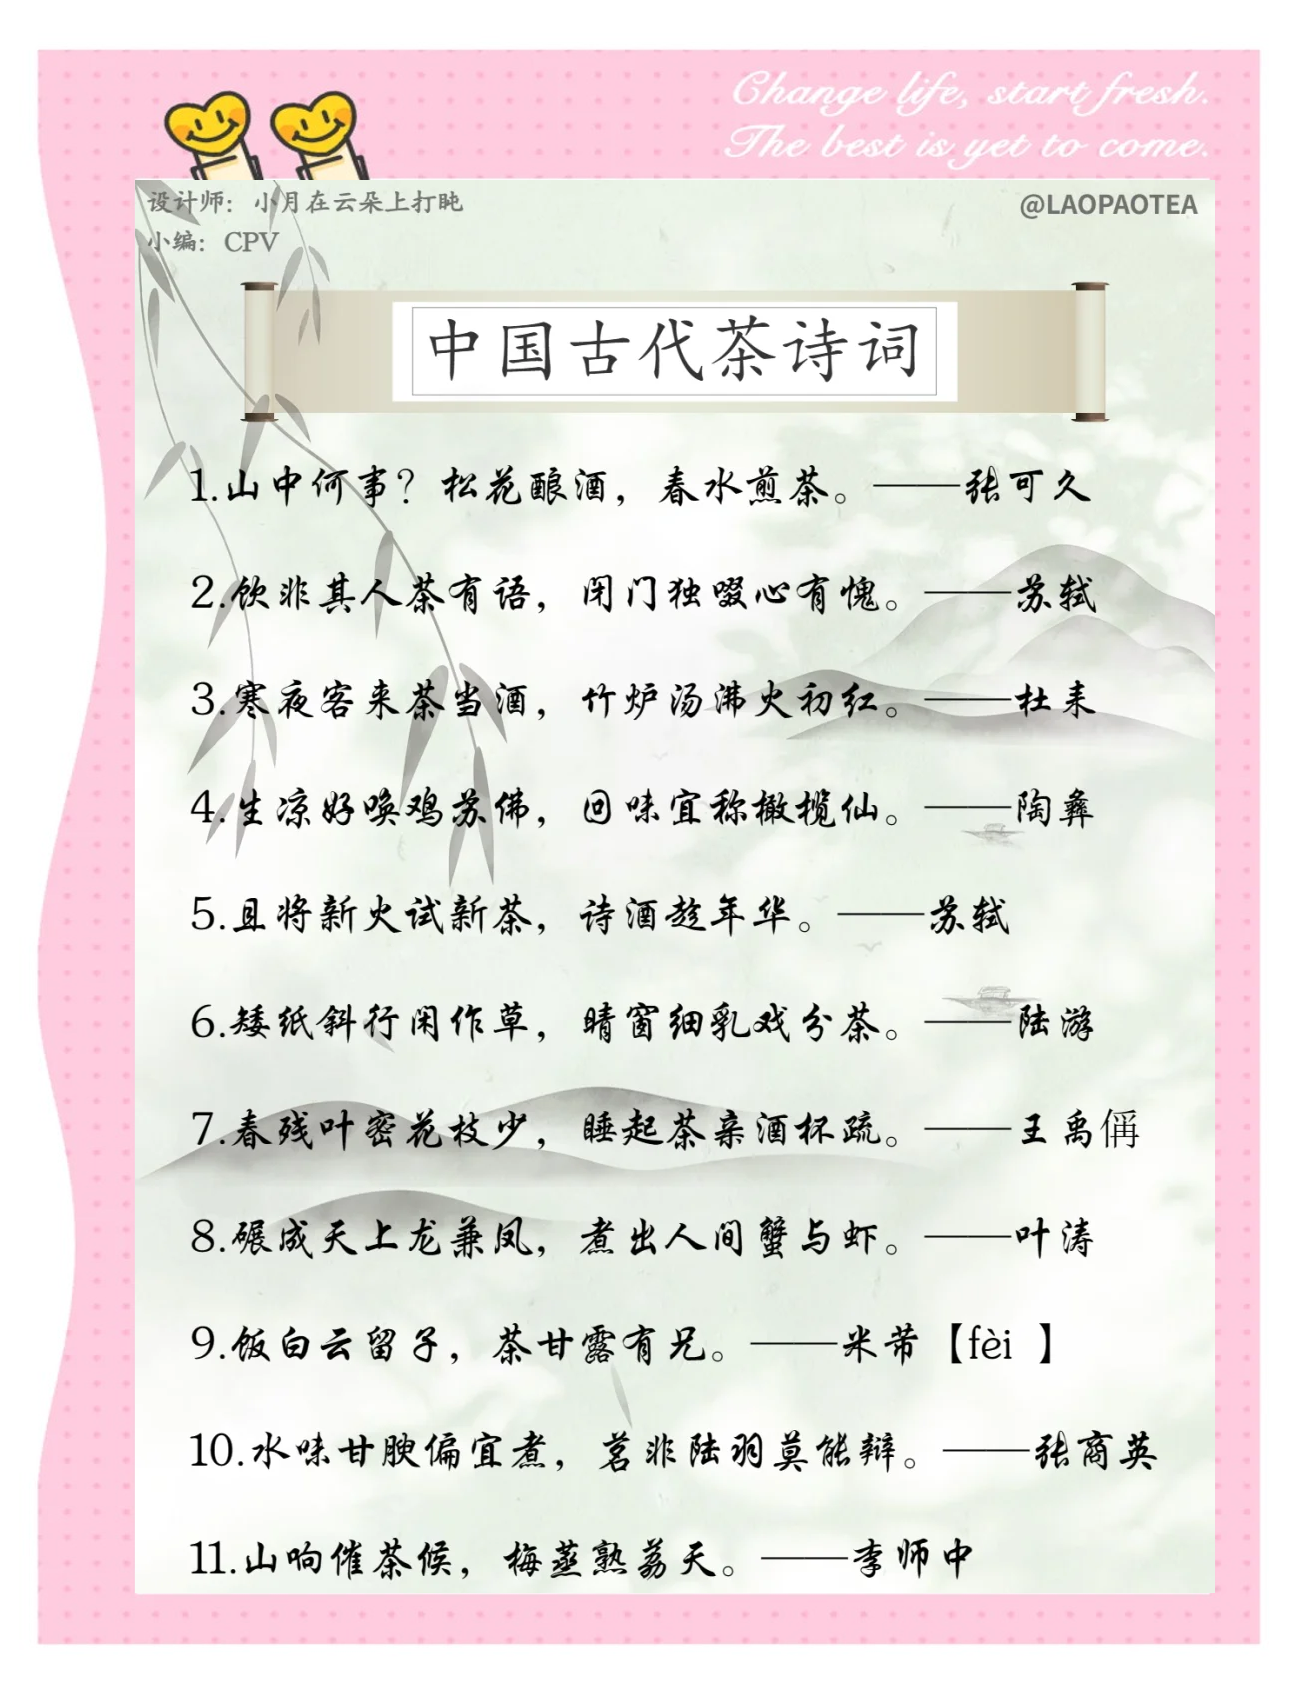 Change life, start fresh.
The best is yet to come.
设计师：小月在云朵上打盹
@LAOPAOTEA
小编：CPV
中国古代茶诗词
1.山中何事？松花酿酒，春水煎茶。——张可久
2.饮非其人茶有语，闭门独啜心有愧。——苏轼
3.寒夜客来茶当酒，竹炉汤沸火初红。——杜耒
4.生凉好唤鸡苏佛，回味宜称橄榄仙。——陶彝
5.且将新火试新茶，诗酒趁年华。——苏轼
6.矮纸斜行闲作草，晴窗细乳戏分茶。——陆游
7.春残叶密花枝少，睡起茶亲酒杯疏。——王禹偁
8.碾成天上龙兼凤，煮出人间蟹与虾。——叶涛
9.饭白云留子，茶甘露有兄。——米芾【fèi 】
10.水味甘腴偏宜煮，茗非陆羽莫能辩。——张商英
11.山响催茶候，梅蒸熟荔天。——李师中